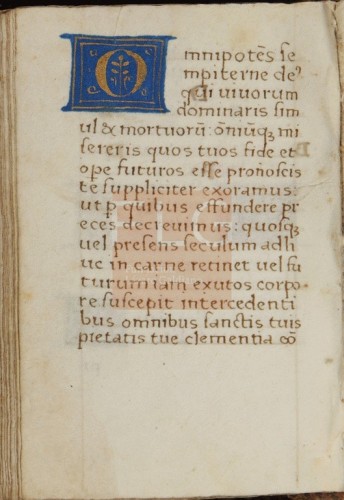 Omnipotẽs se
mpiterne de⁹
qui viuorum
dominaris sim
ul & mortuorũ: õniũqȝ mi
sereris quos tuos fide et
ope futuros esse pronoscis
te suppliciter exoramus:
ut ꝑ quibus effundere pr
eces decreuimus: quosqȝ
uel presens seculum adh
uc in carne retinet uel fu
turum iam exutos corpo
re suscepit intercedenti
bus omnibus sanctis tuis
pietatis tue clementia